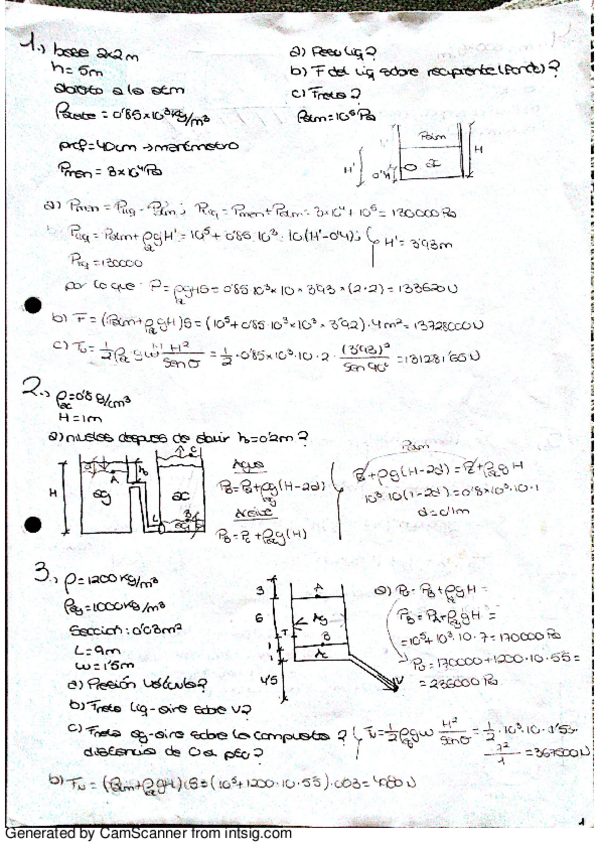 1.) base 2x2m
h = 5m
abierto a la atm
Paceite = 0'85×10³ Kg/m³
prof = 40cm → manómetro
Pman = 3×10⁴ Pa
a) Peso liq?
b) F del liq sobre recipiente (fondo)?
c) Ftotal?
Patm = 10⁵ Pa
Patm
H
H'
0'4
a) Pman = Pliq - Patm; Pliq = Pman + Patm = 3×10⁴ + 10⁵ = 130000 Pa
Pliq = Patm + ρgH' = 10⁵ + 0'85·10³·10(H'-0'4); H' = 3'93m
Pliq = 130000
por lo que: P = ρgHS = 0'85·10³×10×3'93×(2·2) = 133620 N
b) F = (Patm + ρgH)S = (10⁵ + 0'85·10³×10³×3'92)·4m² = 13728000 N
c) = 1/2 ρ g w H²/sen σ = 1/2·0'85×10³·10·2·(3'93)²/sen 90° = 131281'65 N
2.) ρac = 0'8 g/cm³
H = 1m
a) niveles después de abrir h = 0'2m?
H
A
ag
ac
Agua
PB = + ρg(H-2d)
Aceite
PB = Pc + ρg(H)
Patm
+ ρg(H-2d) = + ρgH
10³·10(1-2d) = 0'8×10³·10·1
d = 0'1m
3.) ρ = 1200 Kg/m³
ρag = 1000 Kg/m³
Sección: 0'03m²
L = 9m
w = 1'5m
a) Presión válvula?
b) Ftotal liq-aire sobre V?
c) Ftotal ag-aire sobre la compuerta?
distancia de O al pto?
3
6
4'5
A
Ag
B
Ac
V
a) Pv = PB + ρgH =
PB = PA + ρgH =
= 10⁵ + 10³·10·7 = 170000 Pa
Pv = 170000 + 1200·10·5'5 =
= 236000 Pa
= 1/2 ρgw H²/sen σ = 1/2·10³·10·1'5·
7²/1 = 367500 N
b) = (Patm + ρgH)S = (10⁵ + 1200·10·5'5)·0'03 = 4980 N
1
Generated by CamScanner from intsig.com